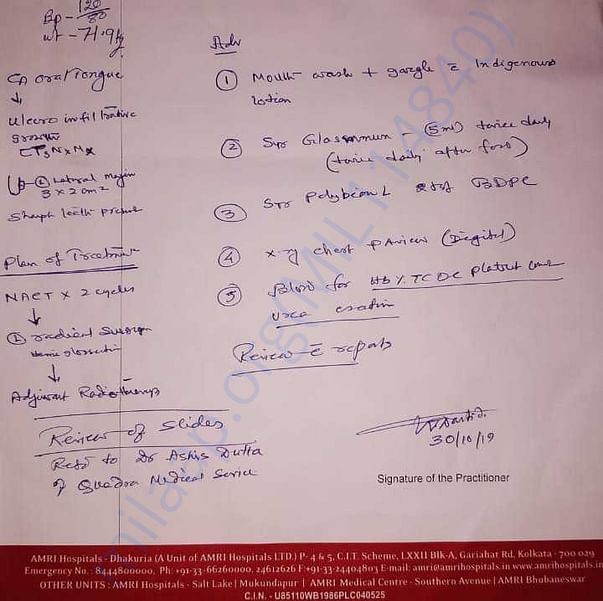 Bp - 120/80
wt - 71.9kg
CA oral Tongue
↓
ulcero infiltrative
growth
CT3NxMx
Lateral margin
3 x 2 cm2
Sharp teeth present
Plan of Treatment
NACT x 2 cycles
↓
radical surgery
Hemi glossectomy
↓
Adjuvant Radiotherapy
Review of Slides
Refd to Dr Ashis Dutta
of Quadra Medical Service
Adv
① Mouth wash + gargle c̄ Indigenous
lotion
② Syr - (5ml) twice daily
(twice daily after food)
③ Syr Polybion L BDPC
④ X-ray chest PA view (Digital)
⑤ Blood for Hb% TC DC Platelet count
urea creatinin
Review c̄ reports
30/10/19
Signature of the Practitioner
AMRI Hospitals - Dhakuria (A Unit of AMRI Hospitals LTD.) P- 4 & 5, C.I.T. Scheme, LXXII Blk-A, Gariahat Rd, Kolkata - 700 029
Emergency No. : 8444800000, Ph: +91-33-66260000, 24612626 F:+91-33-24404803 E-mail: amri@amrihospitals.in www.amrihospitals.in
OTHER UNITS : AMRI Hospitals - Salt Lake | Mukundapur | AMRI Medical Centre - Southern Avenue | AMRI Bhubaneswar
C.I.N. - U85110WB1986PLC040525
milaap.org(MIL114840)